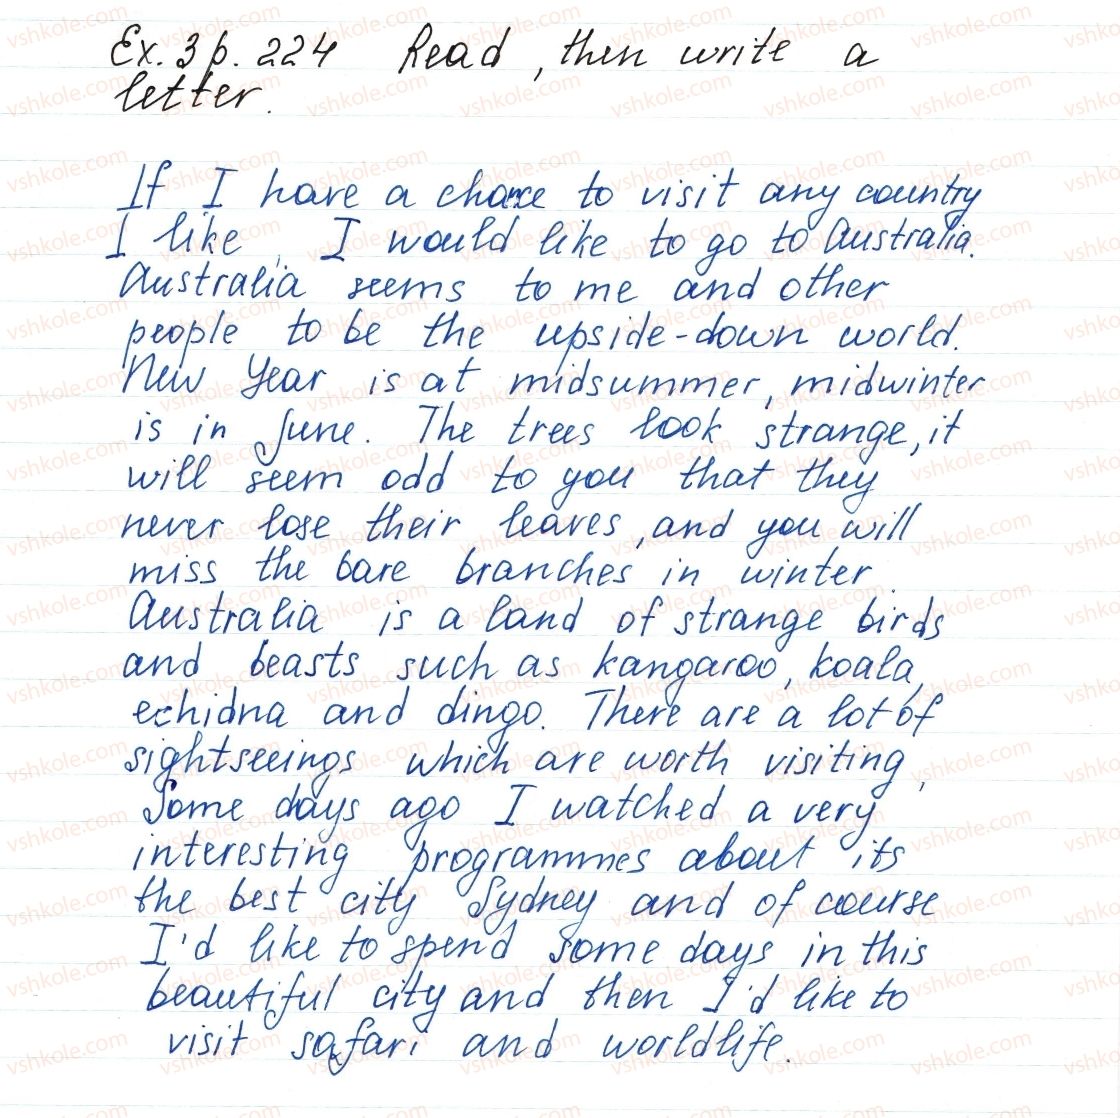 Ex. 3 p. 224 Read, then write a
letter.
If I have a chance to visit any country
I like, I would like to go to Australia.
Australia seems to me and other
people to be the upside-down world.
New Year is at midsummer, midwinter
is in June. The trees look strange, it
will seem odd to you that they
never lose their leaves, and you will
miss the bare branches in winter.
Australia is a land of strange birds
and beasts such as kangaroo, koala,
echidna and dingo. There are a lot of
sightseeings which are worth visiting,
Some days ago I watched a very
interesting programmes about its
the best city Sydney and of course
I'd like to spend some days in this
beautiful city and then I'd like to
visit safari and worldlife.